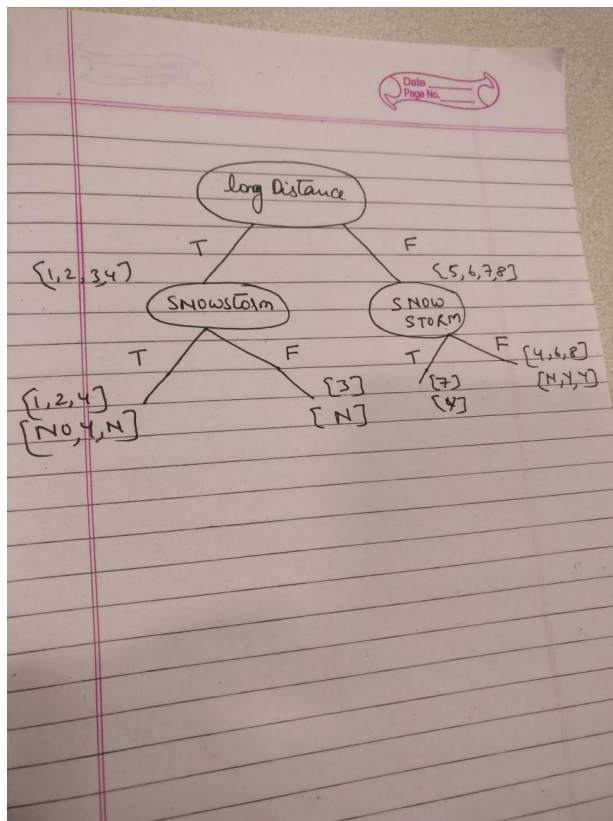 Date
Page No.
long Distance
T
F
{1,2,3,4}
{5,6,7,8}
SNOWSTORM
SNOW
STORM
T
F
T
F
[1,2,4]
[NO,Y,N]
[3]
[N]
[7]
[Y]
[4,6,8]
[N,Y,Y]